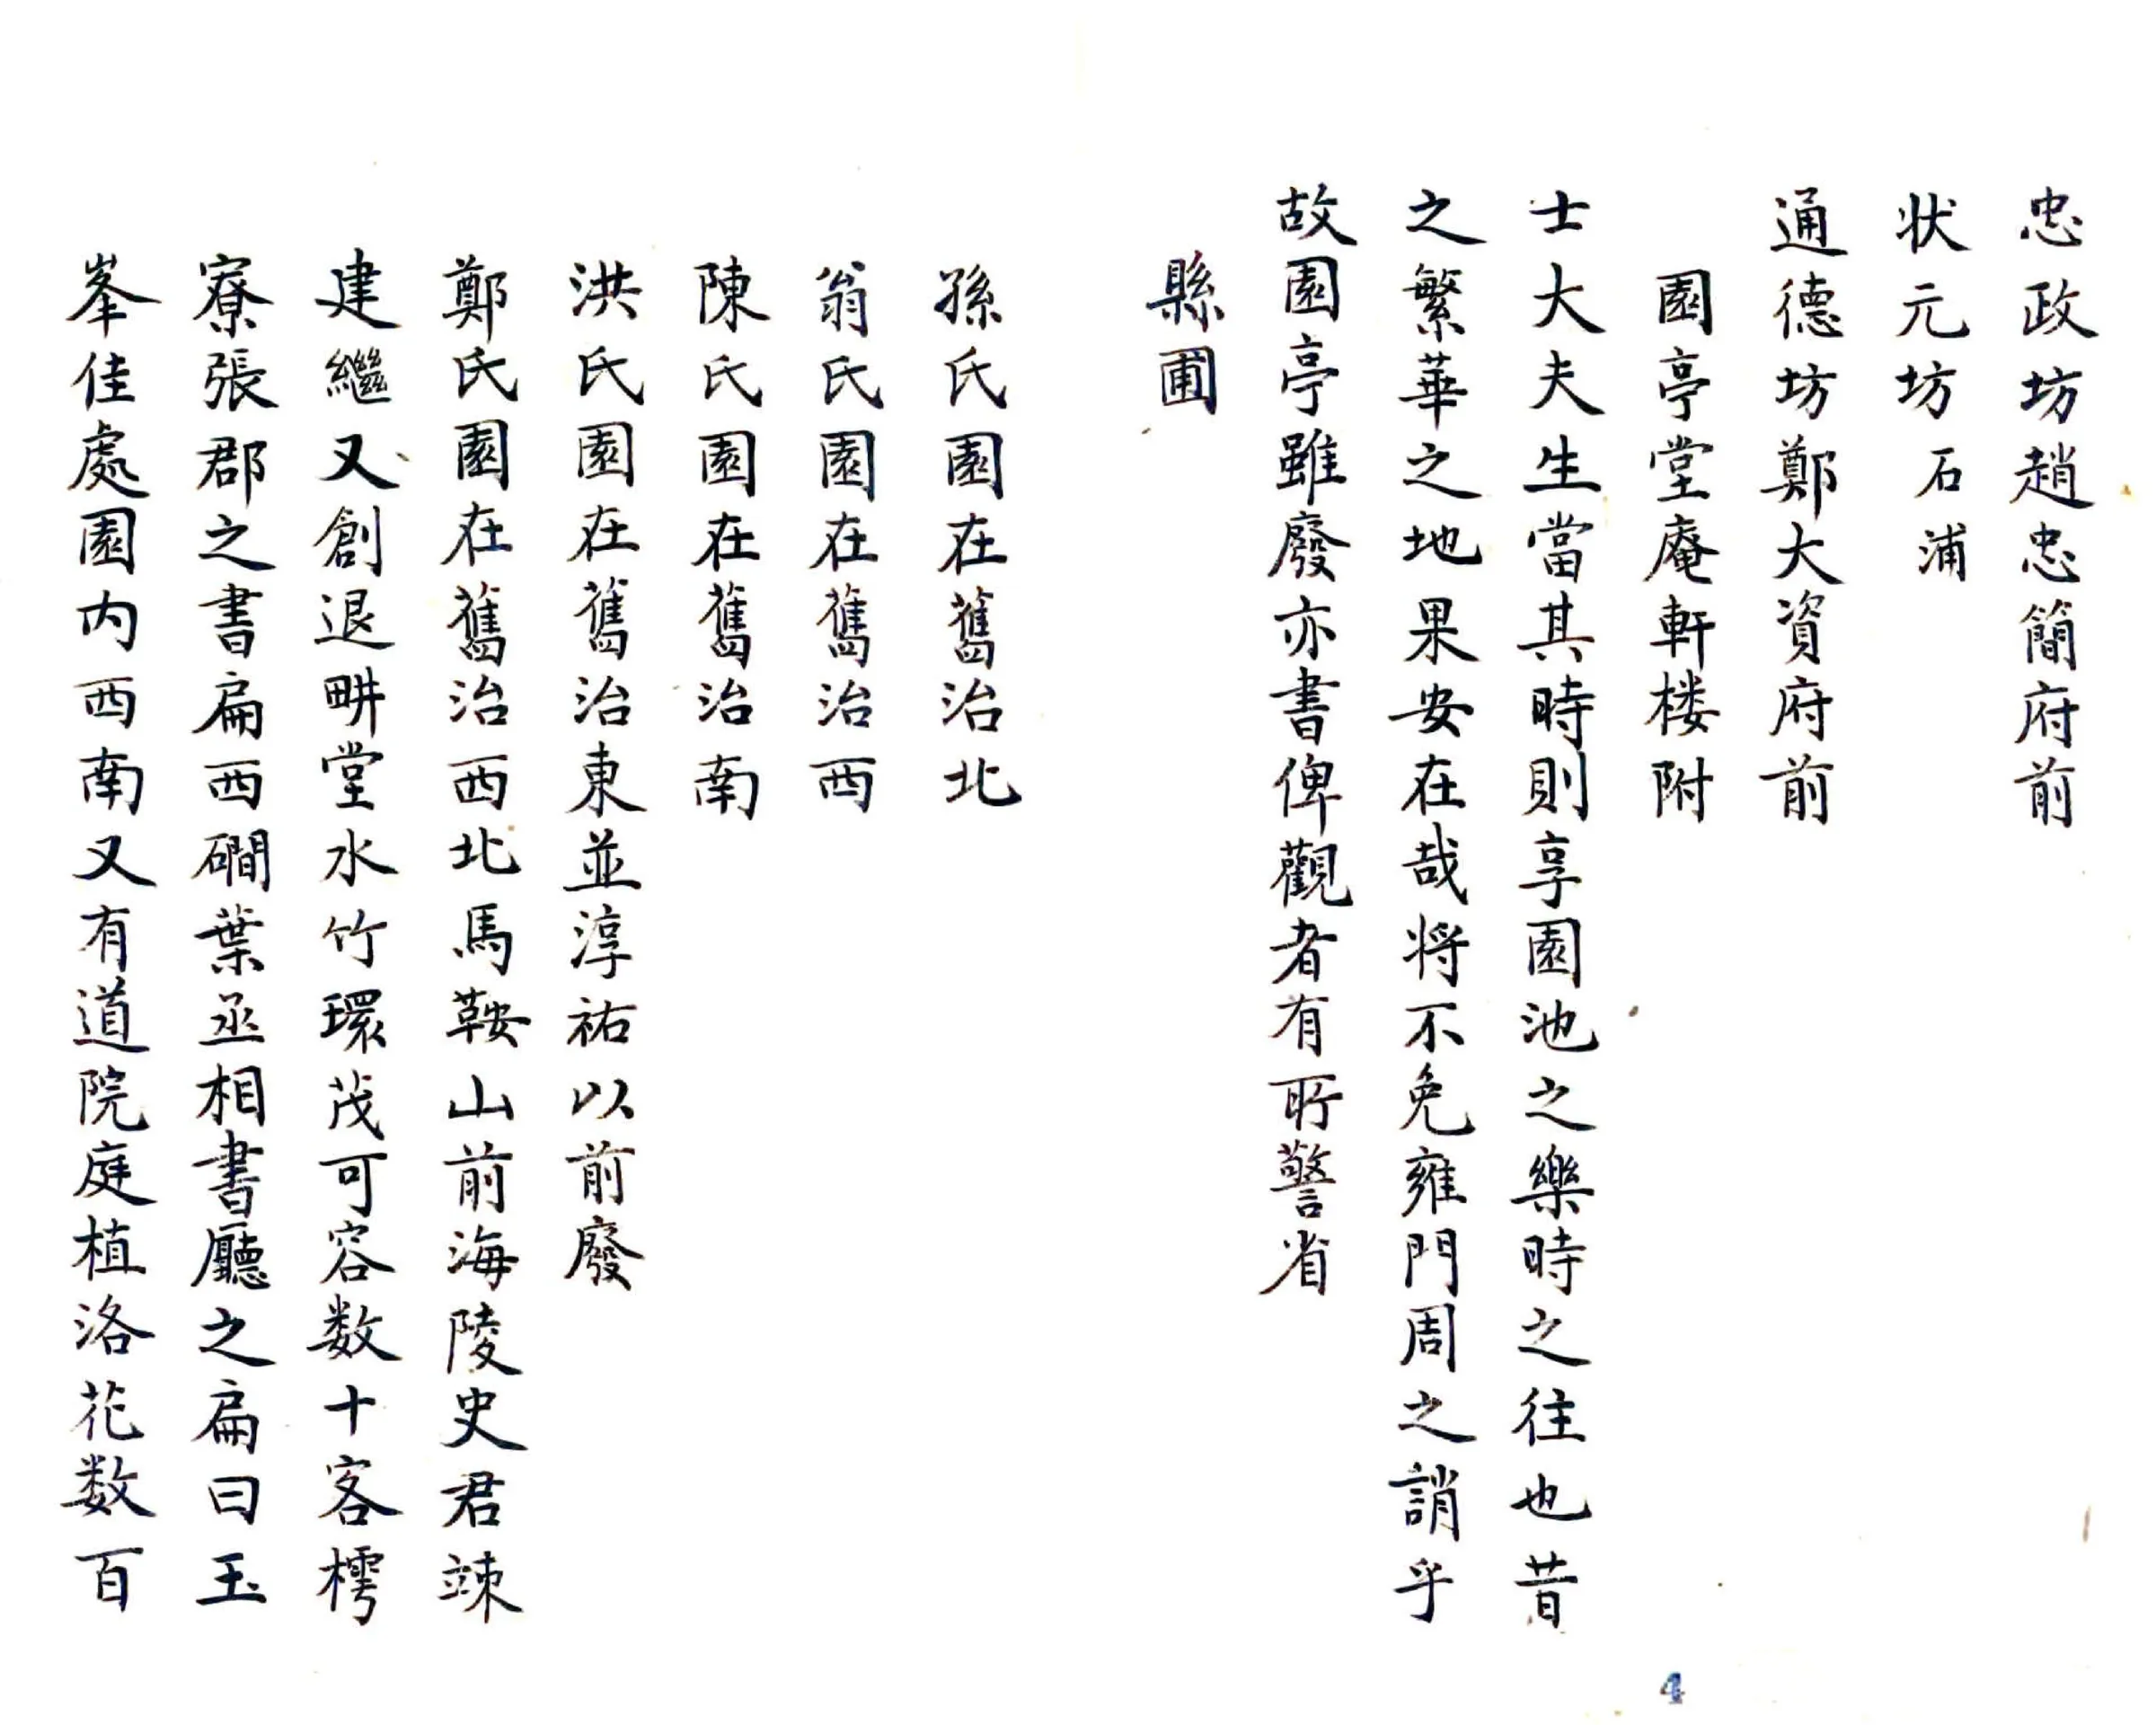 忠政坊趙忠簡府前
状元坊石浦
通德坊鄭大資府前
園亭堂庵軒楼附
士大夫生當其時則享園池之樂時之往也昔
之繁華之地果安在哉将不免雍門周之誚乎
故園亭雖廢亦書俾觀者有所警省
縣圃
孫氏園在舊治北
翁氏園在舊治西
陳氏園在舊治南
洪氏園在舊治東並淳祐以前廢
鄭氏園在舊治西北馬鞍山前海陵史君竦
建繼又創退畊堂水竹環茂可容数十客樗
寮張郡之書扁西磵葉丞相書廳之扁曰玉
峯佳處園内西南又有道院庭植洛花数百
4